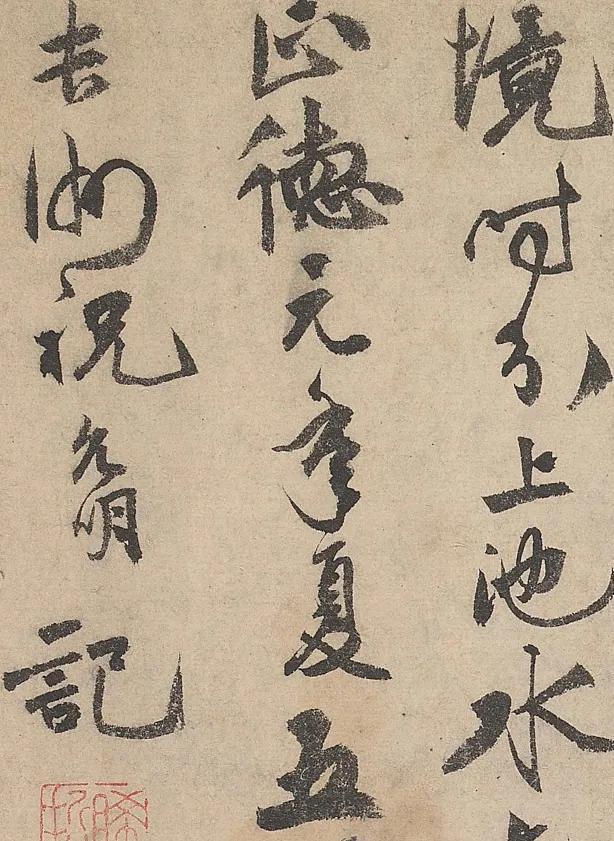 境時分上池水
正德元年夏五
長洲祝允明記